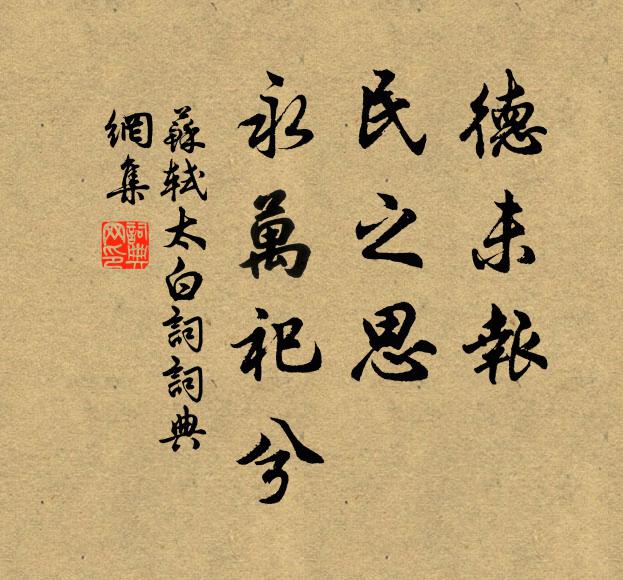 德未報
民之思
永萬祀兮
蘇軾太白詞詞典
網集
詞典網印